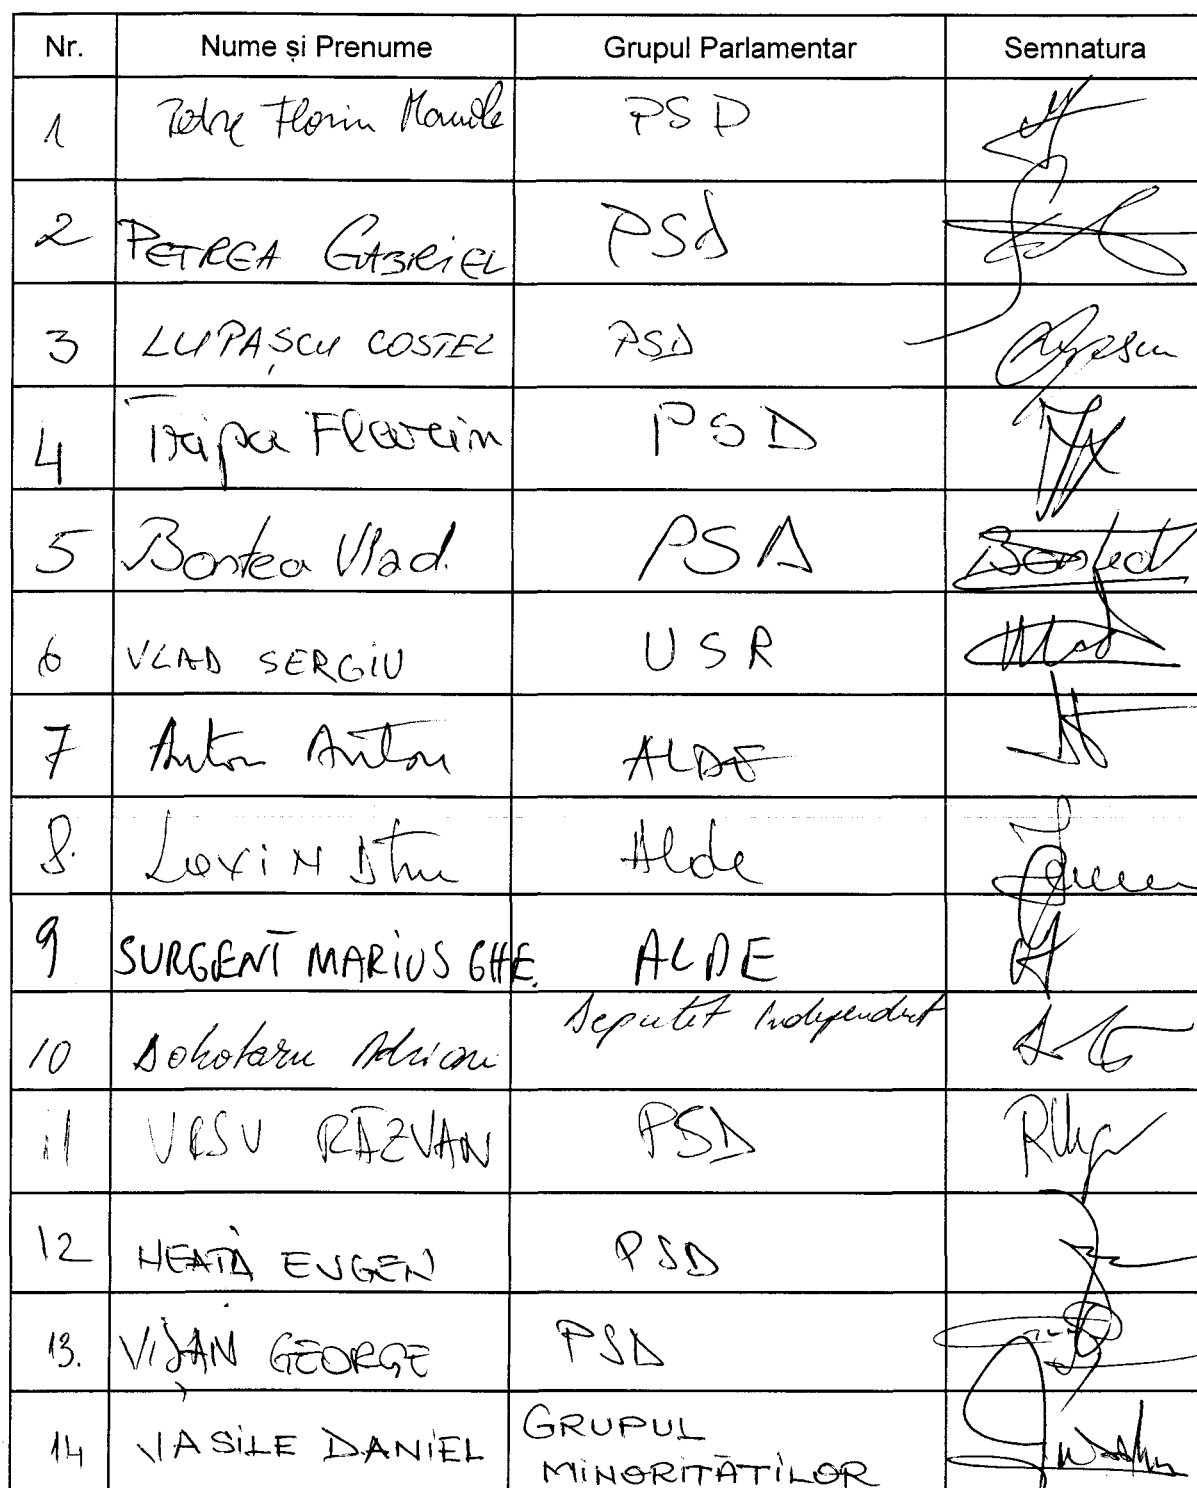 Nr. Nume și Prenume Grupul Parlamentar Semnatura
1 Florin Manole PSD
2 PETREA GABRIEL PSD
3 LUPAȘCU COSTEL PSD
4 Tripa Florin PSD
5 Bontea Vlad. PSD Bontea
6 VLAD SERGIU USR Vlad
7 Anton Anton ALDE
8. Alde
9 SURGENT MARIUS GHE. ALDE
10 Dohotaru Adrian Deputat Independent
11 URSU RĂZVAN PSD
12 NEAȚĂ EUGEN PSD
13. VIȘAN GEORGE PSD
14 VASILE DANIEL GRUPUL
MINORITĂȚILOR